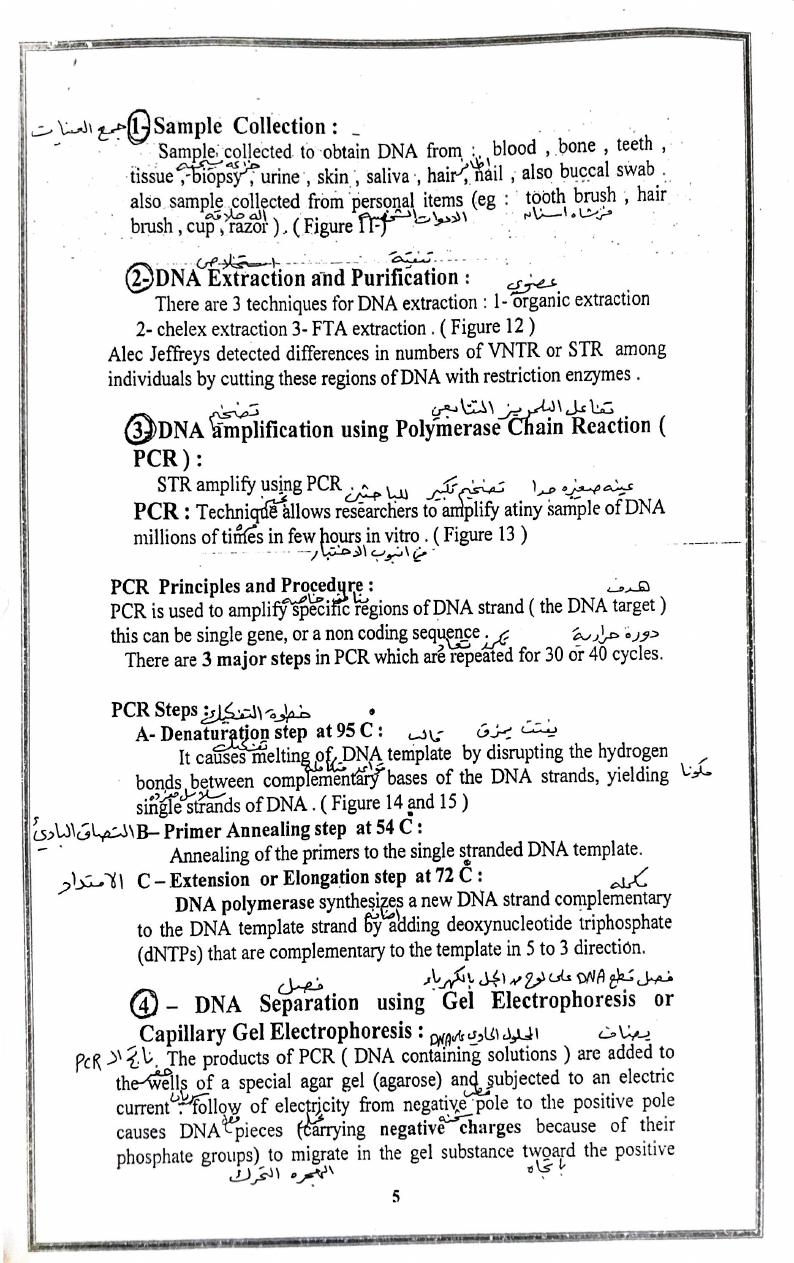 جمع العينات 1- Sample Collection :
Sample collected to obtain DNA from : blood , bone , teeth ,
tissue , biopsy , urine , skin , saliva , hair , nail , also buccal swab .
also sample collected from personal items (eg : tooth brush , hair
brush , cup , razor ) . ( Figure 11 )
فرشاه اسنان
استخلاص تنقية
2- DNA Extraction and Purification :
عضوي
There are 3 techniques for DNA extraction : 1- organic extraction
2- chelex extraction 3- FTA extraction . ( Figure 12 )
Alec Jeffreys detected differences in numbers of VNTR or STR among
individuals by cutting these regions of DNA with restriction enzymes .
تضخيم تفاعل البلمريز التتابعي
3- DNA amplification using Polymerase Chain Reaction (
PCR ) :
STR amplify using PCR .
للباحثين تكبير تضخيم عينه صغيره جدا
PCR : Technique allows researchers to amplify atiny sample of DNA
millions of times in few hours in vitro . ( Figure 13 )
في انبوب الاختبار
PCR Principles and Procedure :
هدف
PCR is used to amplify specific regions of DNA strand ( the DNA target )
this can be single gene, or a non coding sequence .
دورة حرارية
There are 3 major steps in PCR which are repeated for 30 or 40 cycles.
PCR Steps : خطوة التفكيك
A- Denaturation step at 95 C :
تفكيك
It causes melting of DNA template by disrupting the hydrogen
bonds between complementary bases of the DNA strands, yielding
single strands of DNA . ( Figure 14 and 15 )
التصاق البادئ B– Primer Annealing step at 54 C :
Annealing of the primers to the single stranded DNA template.
الامتداد C – Extension or Elongation step at 72 C :
DNA polymerase synthesizes a new DNA strand complementary
to the DNA template strand by adding deoxynucleotide triphosphate
(dNTPs) that are complementary to the template in 5 to 3 direction.
فصل قطع DNA على لوح من الجل بالكهرباء
فصل
4 – DNA Separation using Gel Electrophoresis or
Capillary Gel Electrophoresis :
الحلول الحاوي على DNA
PCR The products of PCR ( DNA containing solutions ) are added to
the wells of a special agar gel (agarose) and subjected to an electric
current . follow of electricity from negative pole to the positive pole
causes DNA pieces (carrying negative charges because of their
phosphate groups) to migrate in the gel substance twoard the positive
الهجره التحرك باتجاه
5